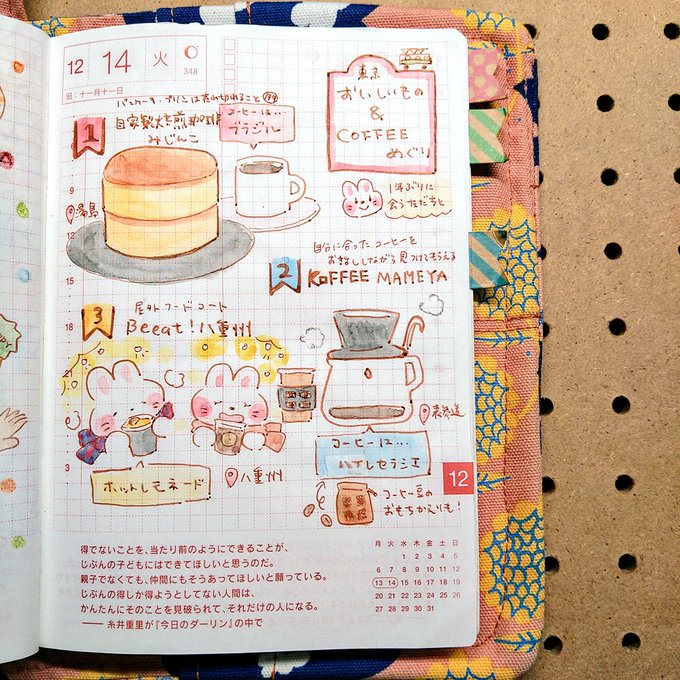 12 14 火
348
旧：十一月十一日
東京
おいしいもの
&
COFFEE
めぐり
パンケーキ・プリンは売り切れること
1
コーヒーは…
ブラジル
みじんこ
湯島
1年ぶりに
会う友だちと
自分に合ったコーヒーを
お話ししながら見つけてもらえる
2
KOFFEE MAMEYA
3
屋外フードコート
Beeat!八重州
表参道
コーヒーは…
ホットレモネード
八重州
コーヒー豆の
おもちかえりも!
9
12
15
18
21
3
12
得でないことを、当たり前のようにできることが、
じぶんの子どもにはできてほしいと思うのだ。
親子でなくても、仲間にもそうあってほしいと願っている。
じぶんの得しか得ようとしてない人間は、
かんたんにそのことを見破られて、それだけの人になる。
── 糸井重里が『今日のダーリン』の中で
月 火 水 木 金 土 日
1 2 3 4 5
6 7 8 9 10 11 12
13 14 15 16 17 18 19
20 21 22 23 24 25 26
27 28 29 30 31